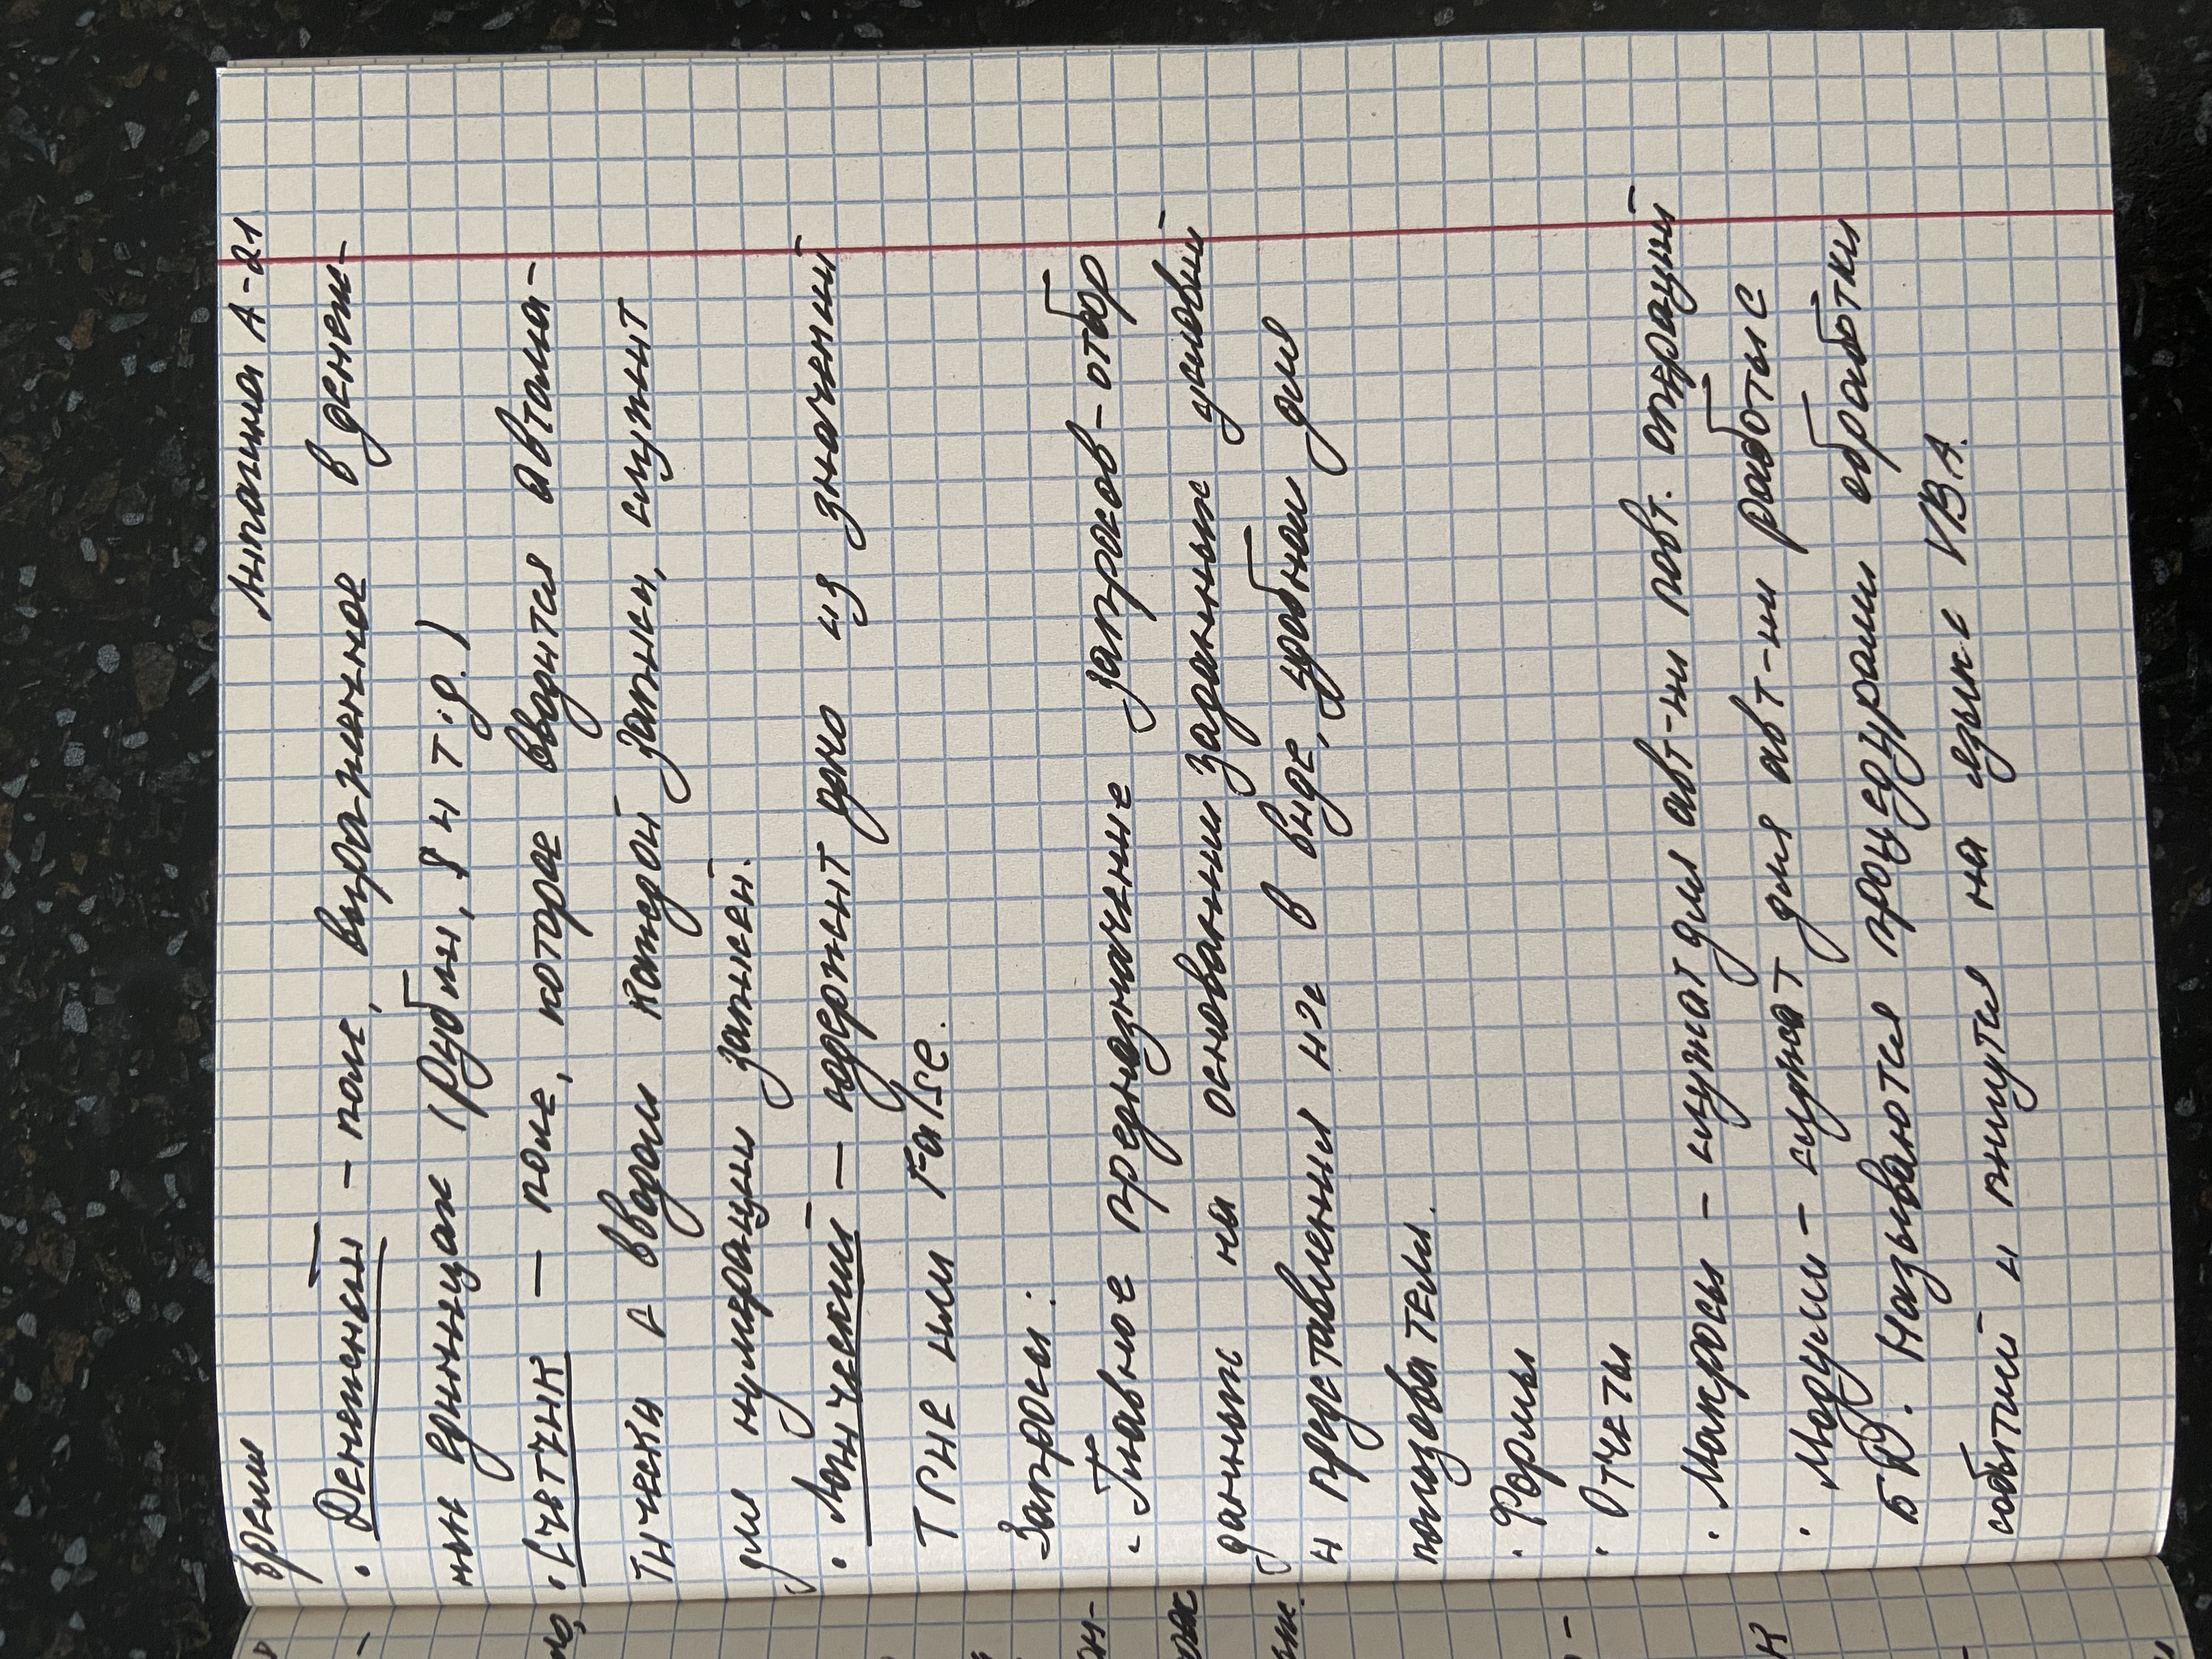 время Липагина А-21
· Денежный - поле, выраженное в денеж-
ных единицах (рубли, $ и т.д.)
· Счетчик - поле, которое вводится автома-
тически с вводом каждой записи, служит
для нумерации записей.
· Логический - содержит одно из значений
True или False.
Запросы:
- Главное предназначение запросов - отбор
данных на основании заданных условий
и представления их в виде, удобном для
пользователя.
· Формы
· Отчеты
· Макросы - служат для авт-ии повт. операций
· Модули - служат для авт-ии работы с
БД. Называются процедурами обработки
событий и пишутся на языке VBA.